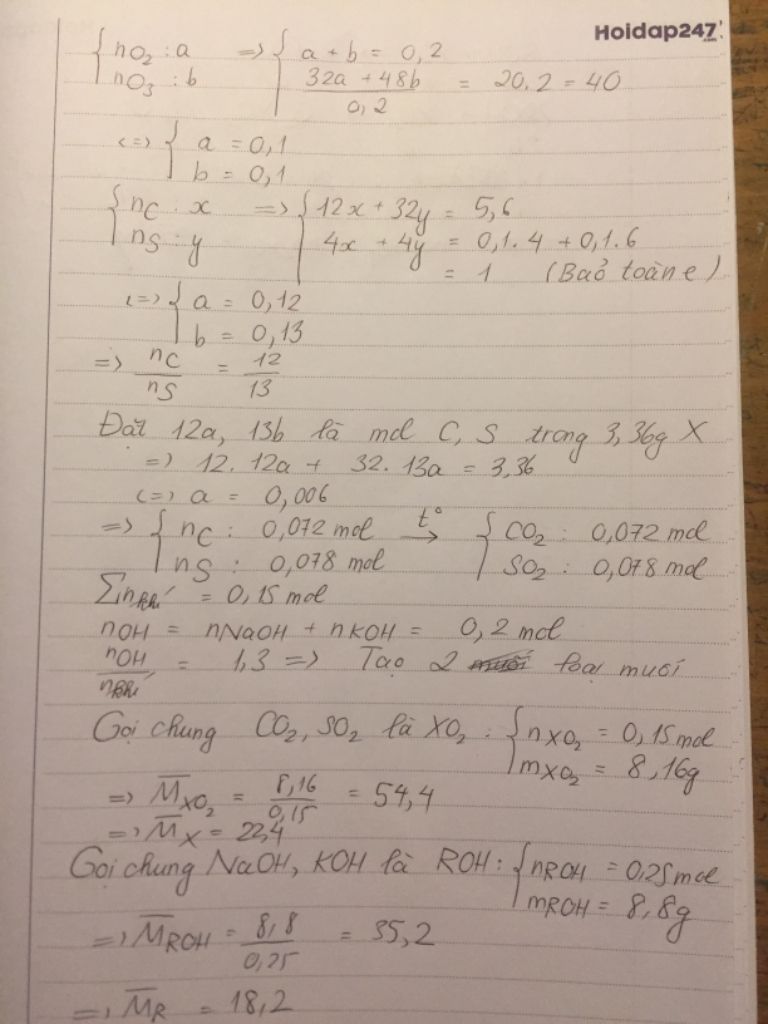 Hoidap247.com
{ nO₂ : a => { a + b = 0,2
nO₃ : b (32a + 48b)/0,2 = 20.2 = 40
<=> { a = 0,1
b = 0,1
{ nC : x => { 12x + 32y = 5,6
nS : y 4x + 4y = 0,1.4 + 0,1.6
= 1 (Baỏ toàn e)
<=> { a = 0,12
b = 0,13
=> nC/nS = 12/13
Đặt 12a, 13b là mol C, S trong 3,36g X
=> 12.12a + 32.13a = 3,36
<=> a = 0,006
=> { nC : 0,072 mol t° → { CO₂ : 0,072 mol
nS : 0,078 mol SO₂ : 0,078 mol
Σn khí = 0,15 mol
nOH = nNaOH + nKOH = 0,2 mol
nOH/n khí = 1,3 => Tạo 2 loại muối
Gọi chung CO₂, SO₂ là XO₂ : { nXO₂ = 0,15 mol
mXO₂ = 8,16g
=> M̅XO₂ = 8,16/0,15 = 54,4
=> M̅X = 22,4
Gọi chung NaOH, KOH là ROH : { nROH = 0,25 mol
mROH = 8,8g
=> M̅ROH = 8,8/0,25 = 35,2
=> M̅R = 18,2